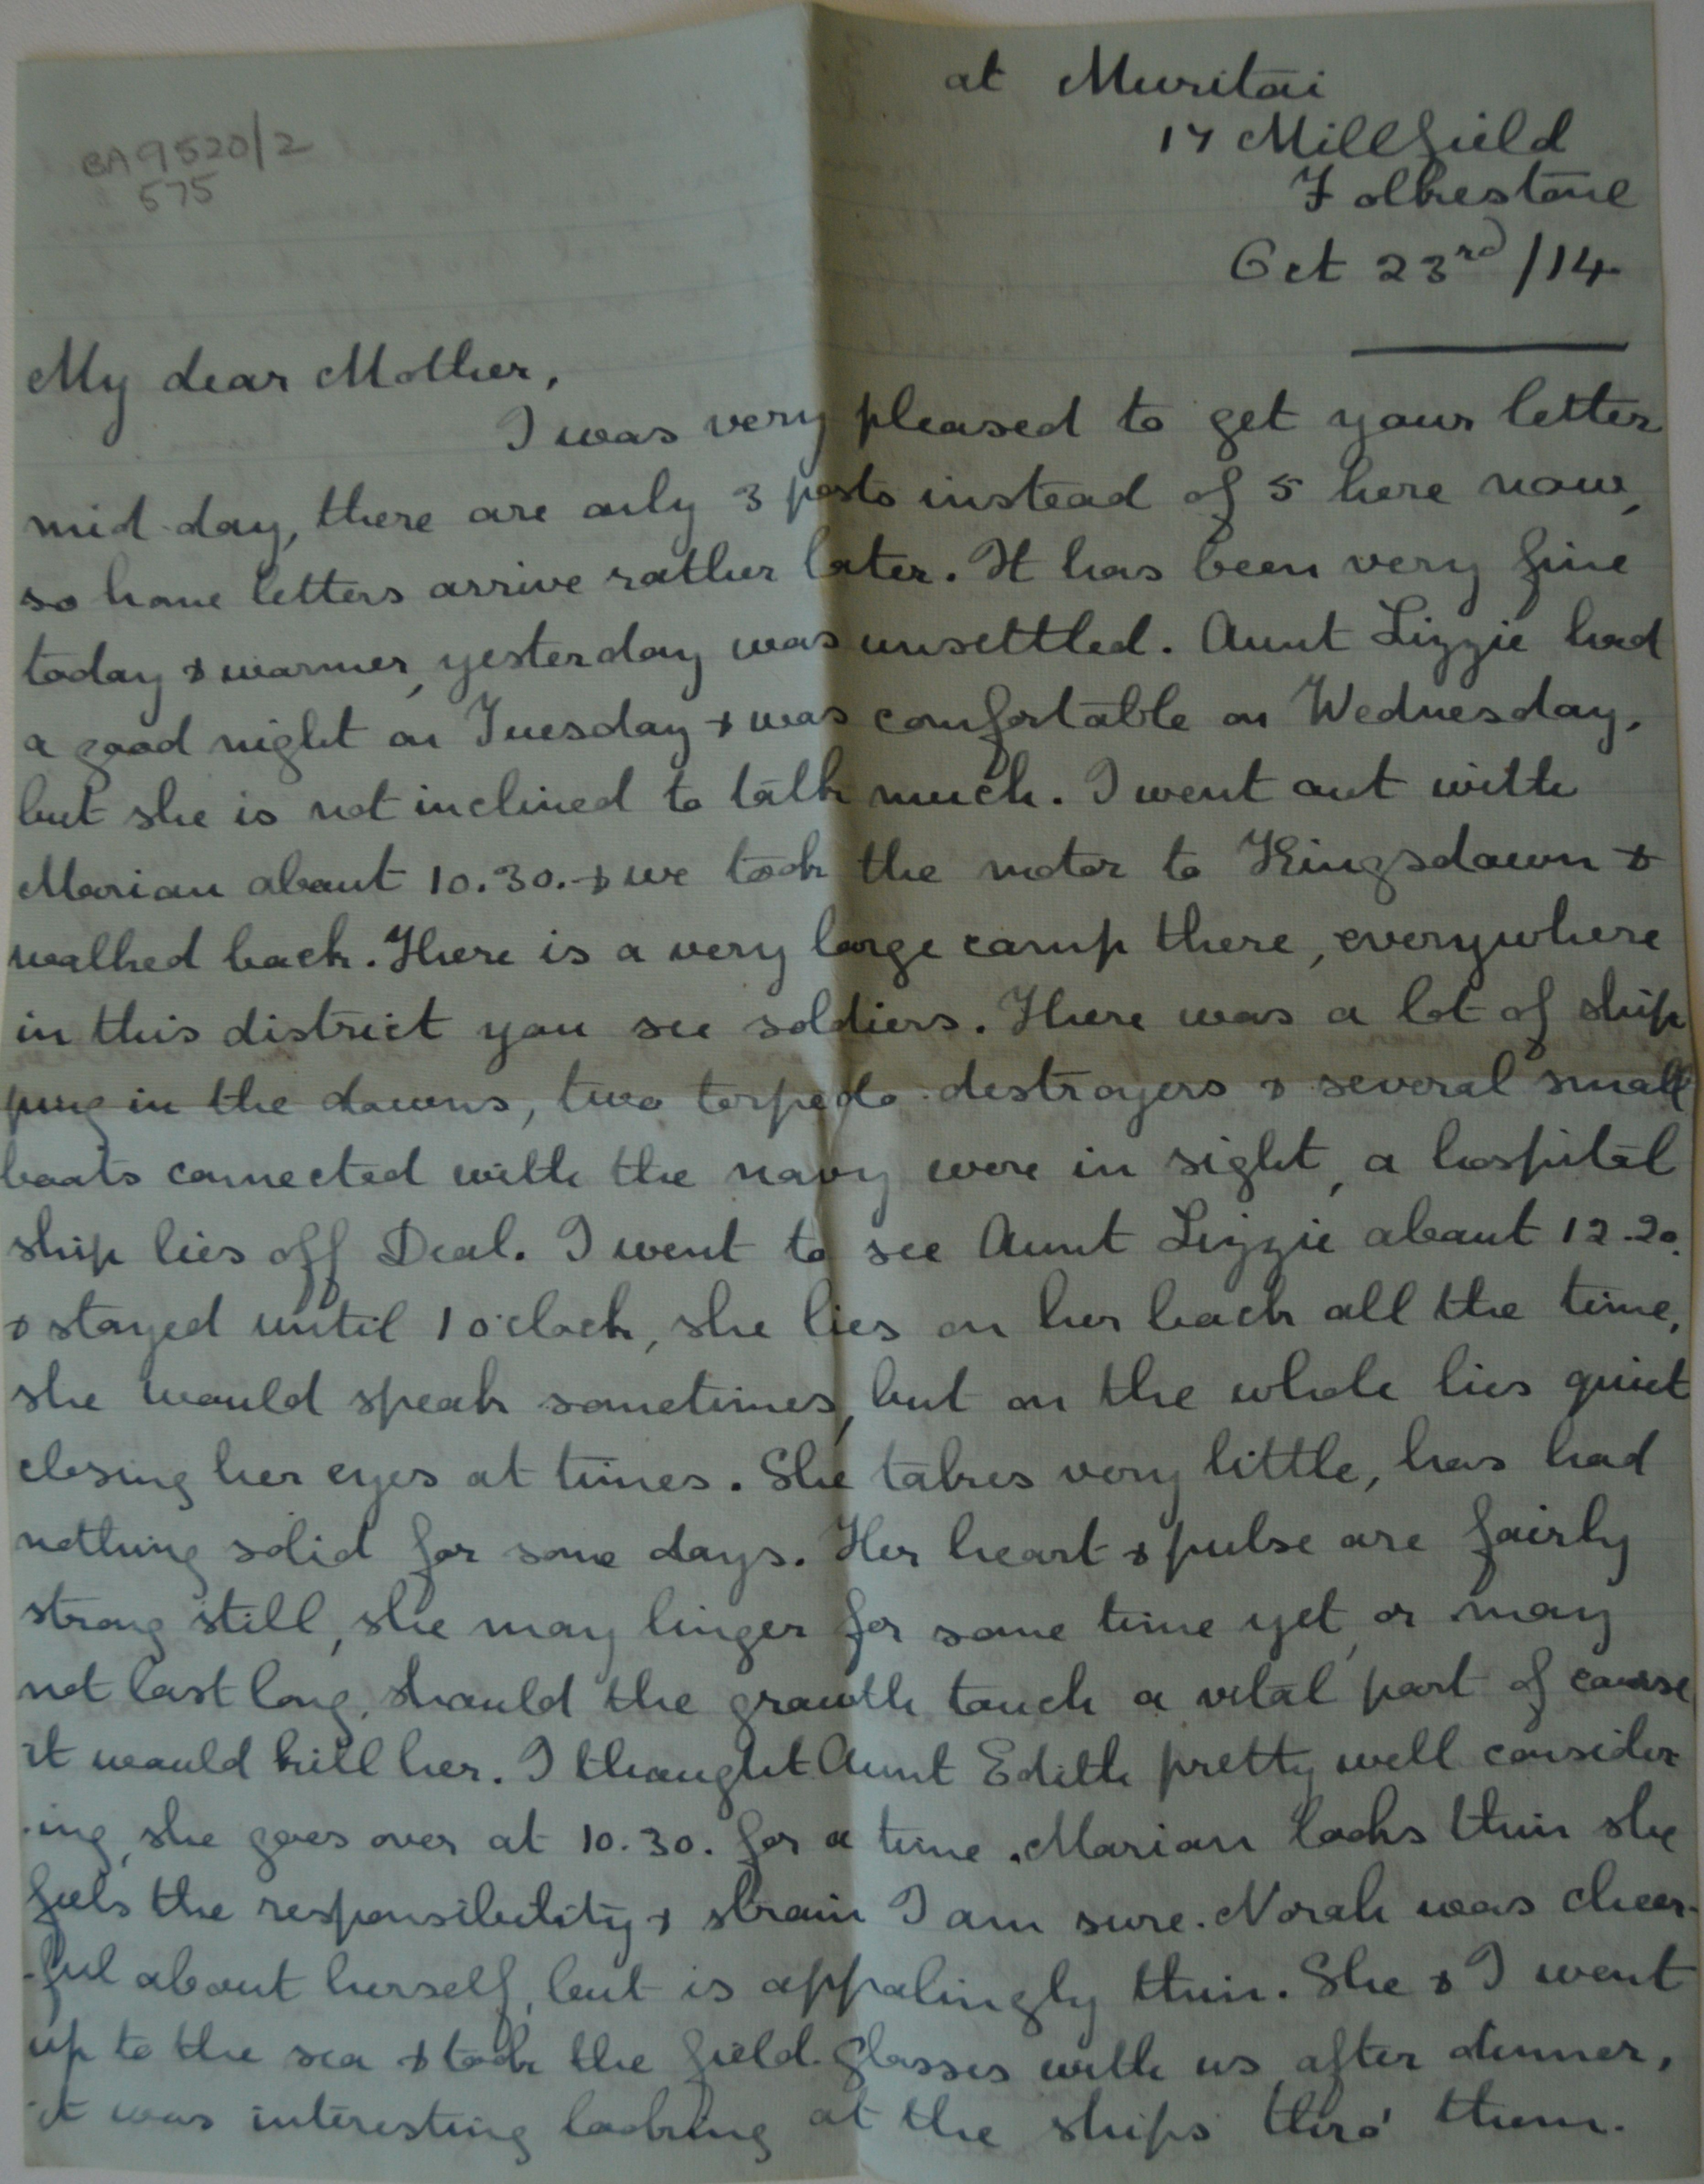 BA9520/2
575
at Muritai
17 Millfield
Folkestone
Oct 23rd /14
My dear Mother,
I was very pleased to get your letter
mid-day, there are only 3 posts instead of 5 here now,
so home letters arrive rather later. It has been very fine
today & warmer, yesterday was unsettled. Aunt Lizzie had
a good night on Tuesday & was comfortable on Wednesday,
but she is not inclined to talk much. I went out with
Marian about 10.30. & we took the motor to Kingsdown &
walked back. There is a very large camp there, everywhere
in this district you see soldiers. There was a lot of ship
ping in the downs, two torpedo-destroyers & several small
boats connected with the navy were in sight, a hospital
ship lies off Deal. I went to see Aunt Lizzie about 12.20.
& stayed until 1 o'clock, she lies on her back all the time,
she would speak sometimes, but on the whole lies quiet
closing her eyes at times. She takes very little, has had
nothing solid for some days. Her heart & pulse are fairly
strong still, she may linger for some time yet, or may
not last long, should the growth touch a vital part of course
it would kill her. I thought Aunt Edith pretty well consider-
-ing, she goes over at 10.30. for a time. Marian looks thin she
feels the responsibility & strain I am sure. Norah was cheer-
-ful about herself, but is appalingly thin. She & I went
up to the sea & took the field-glasses with us after dinner,
it was interesting looking at the ships thro' them.